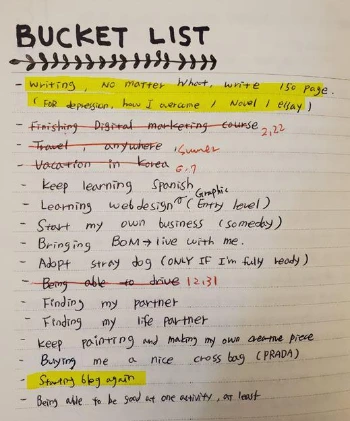 BUCKET LIST
- Writing, No matter What, write 150 page.
(For depression, how I overcome / Novel / essay)
- Finishing Digital marketing course 2,22
- Travel, anywhere
- Vacation in Korea 6.7
- Keep learning Spanish
Graphic
- Learning webdesign (Entry level)
- Start my own business (someday)
- Bringing BOM → live with me.
- Adopt stray dog (ONLY IF I'm fully ready)
- Being able to drive 12.31
- Finding my partner
- Finding my life partner
- Keep painting and making my own creative piece
- Buying me a nice cross bag (PRADA)
- Starting blog again
- Being able to be good at one activity, at least